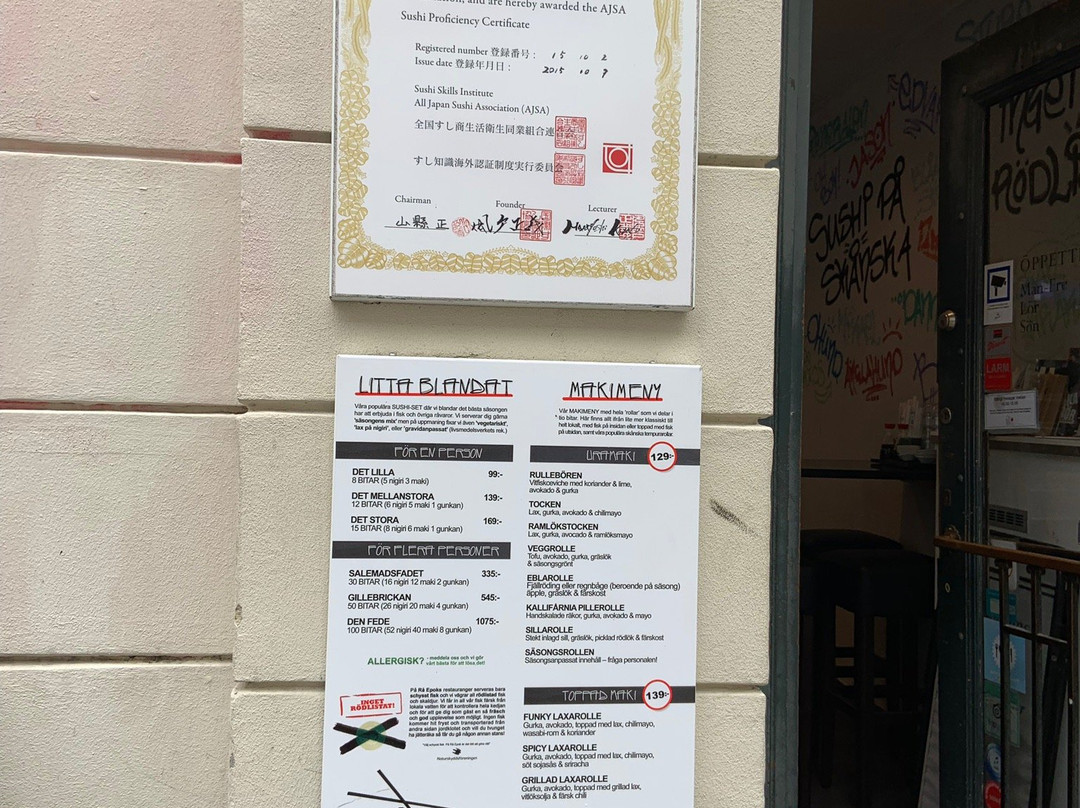 and are hereby awarded the AJSA
Sushi Proficiency Certificate
Registered number 登録番号： 15 10 2
Issue date 登録年月日： 2015 10 9
Sushi Skills Institute
All Japan Sushi Association (AJSA)
全国すし商生活衛生同業組合連
すし知識海外認証制度実行委員会
Chairman Founder Lecturer
山縣 正
LITTA BLANDAT
Våra populära SUSHI-SET där vi blandar det bästa säsongen
har att erbjuda i fisk och övriga råvaror. Vi serverar dig gärna
'säsongens mix' men på uppmaning fixar vi även 'vegetariskt',
'lax på nigiri', eller 'gravidanpassat' (livsmedelsverkets rek.)
FÖR EN PERSON
DET LILLA 99:-
8 BITAR (5 nigiri 3 maki)
DET MELLANSTORA 139:-
12 BITAR (6 nigiri 5 maki 1 gunkan)
DET STORA 169:-
15 BITAR (8 nigiri 6 maki 1 gunkan)
FÖR FLERA PERSONER
SALEMADSFADET 335:-
30 BITAR (16 nigiri 12 maki 2 gunkan)
GILLEBRICKAN 545:-
50 BITAR (26 nigiri 20 maki 4 gunkan)
DEN FEDE 1075:-
100 BITAR (52 nigiri 40 maki 8 gunkan)
ALLERGISK? - meddela oss och vi gör
vårt bästa för att lösa det!
INGET
RÖDLISTAT!
På Rå Epoke restauranger serveras bara
schysst fisk och vi vägrar all rödlistad fisk
och skaldjur. Vi får in allt vår fisk färsk från
lokala vatten för att kontrollera hela kedjan
och för att ge dig som gäst en så fräsch
och god upplevelse som möjligt. Ingen fisk
kommer hit fryst och transporterad från
andra sidan jordklotet och vill du tvunget
ha jätteräka så får du gå någon annan stans!
Naturskyddsföreningen
MAKIMENY
Vår MAKIMENY med hela 'rollar' som vi delar i
tio bitar. Här finns allt ifrån lite mer klassiskt till
helt lokalt, med fisk på insidan eller toppad med fisk
på utsidan, samt våra populära skånska tempurarollar.
URAMAKI 129:-
RULLEBÖREN
Vitfiskceviche med koriander & lime,
avokado & gurka
TOCKEN
Lax, gurka, avokado & chilimayo
RAMLÖKSTOCKEN
Lax, gurka, avocado & ramlöksmayo
VEGGROLLE
Tofu, avokado, gurka, gräslök
& säsongsgrönt
EBLAROLLE
Fjällröding eller regnbåge (beroende på säsong)
äpple, gräslök & färskost
KALLIFÄRNIA PILLEROLLE
Handskalade räkor, gurka, avokado & mayo
SILLAROLLE
Stekt inlagd sill, gräslök, picklad rödlök & färskost
SÄSONGSROLLEN
Säsongsanpassat innehåll – fråga personalen!
TOPPAD MAKI 139:-
FUNKY LAXAROLLE
Gurka, avokado, toppad med lax, chilimayo,
wasabi-rom & koriander
SPICY LAXAROLLE
Gurka, avokado, toppad med lax, chilimayo,
söt sojasås & sriracha
GRILLAD LAXAROLLE
Gurka, avokado, toppad med grillad lax,
vitlöksolja & färsk chili
SUSHI PÅ
SKÅNSKA
ÖPPETT
Mån-Tre
Lör
Sön
LARM